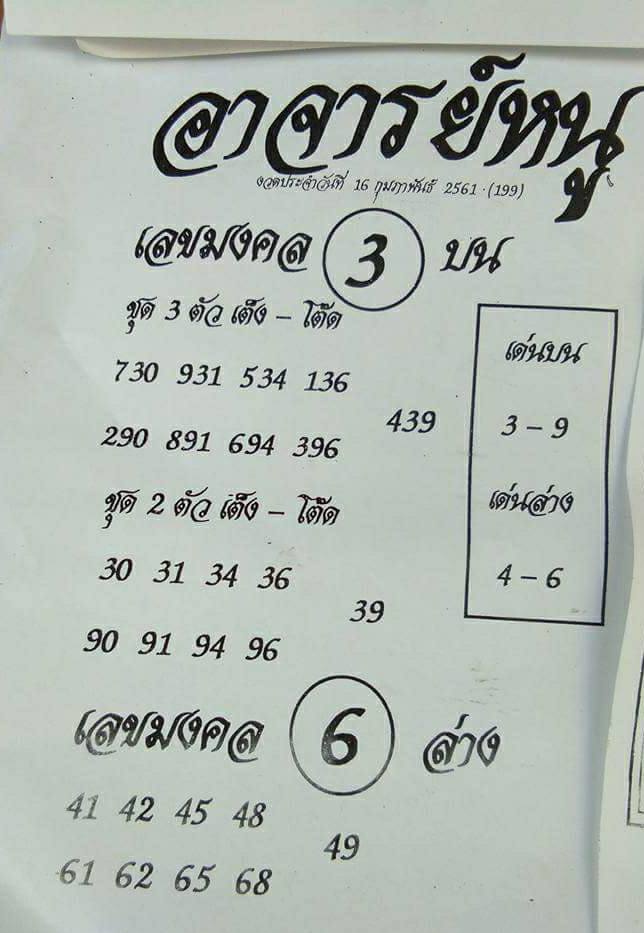 อาจารย์หนู
งวดประจำวันที่ 16 กุมภาพันธ์ 2561 · (199)
เลขมงคล 3 บน
ชุด 3 ตัว เต็ง – โต๊ด
730 931 534 136
439
290 891 694 396
ชุด 2 ตัว เต็ง – โต๊ด
30 31 34 36
39
90 91 94 96
เด่นบน
3 – 9
เด่นล่าง
4 – 6
เลขมงคล 6 ล่าง
41 42 45 48
49
61 62 65 68